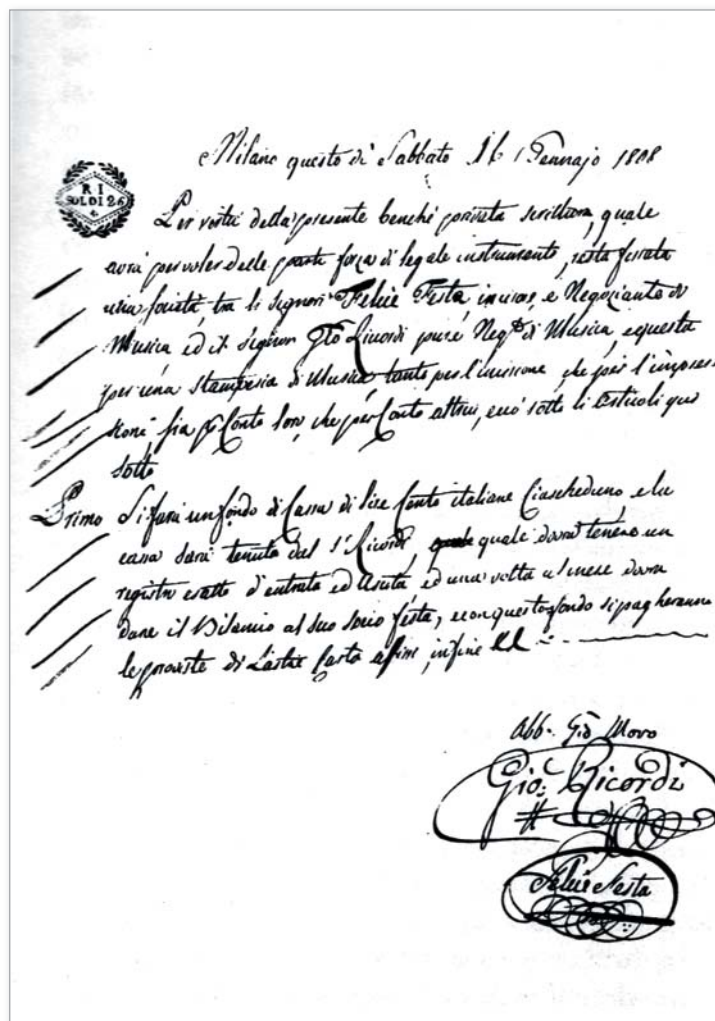 Milano questo dì Sabbato 16 Gennajo 1808
R I
SOLDI 26
Per virtù della presente benchè privata scrittura, quale
avrà per voler delle parti forza di legale instrumento, resta fissata
una società, tra li Signori Felice Festa, incisor, e Negoziante di
Musica ed il Signor Gio Ricordi pure Neg.te di Musica, e questa
per una Stamperia di Musica, tanto per l'incisione, che per l'impres
sione sia p Conto loro, che per Conto altrui, e ciò sotto li Articoli qui
sotto
Primo Si farà un fondo di Cassa di Lire Cento italiane Ciascheduno, e la
cassa sarà tenuta dal S.r Ricordi, quale dovrà tenere un
registro esatto d'entrata ed Uscita, ed una volta al mese dovrà
dare il Bilancio al suo Socio Festa, e con questo fondo si pagheranno
le provviste di Lastre Carta
Abb. Giò Moro
Gio: Ricordi
Felice Festa